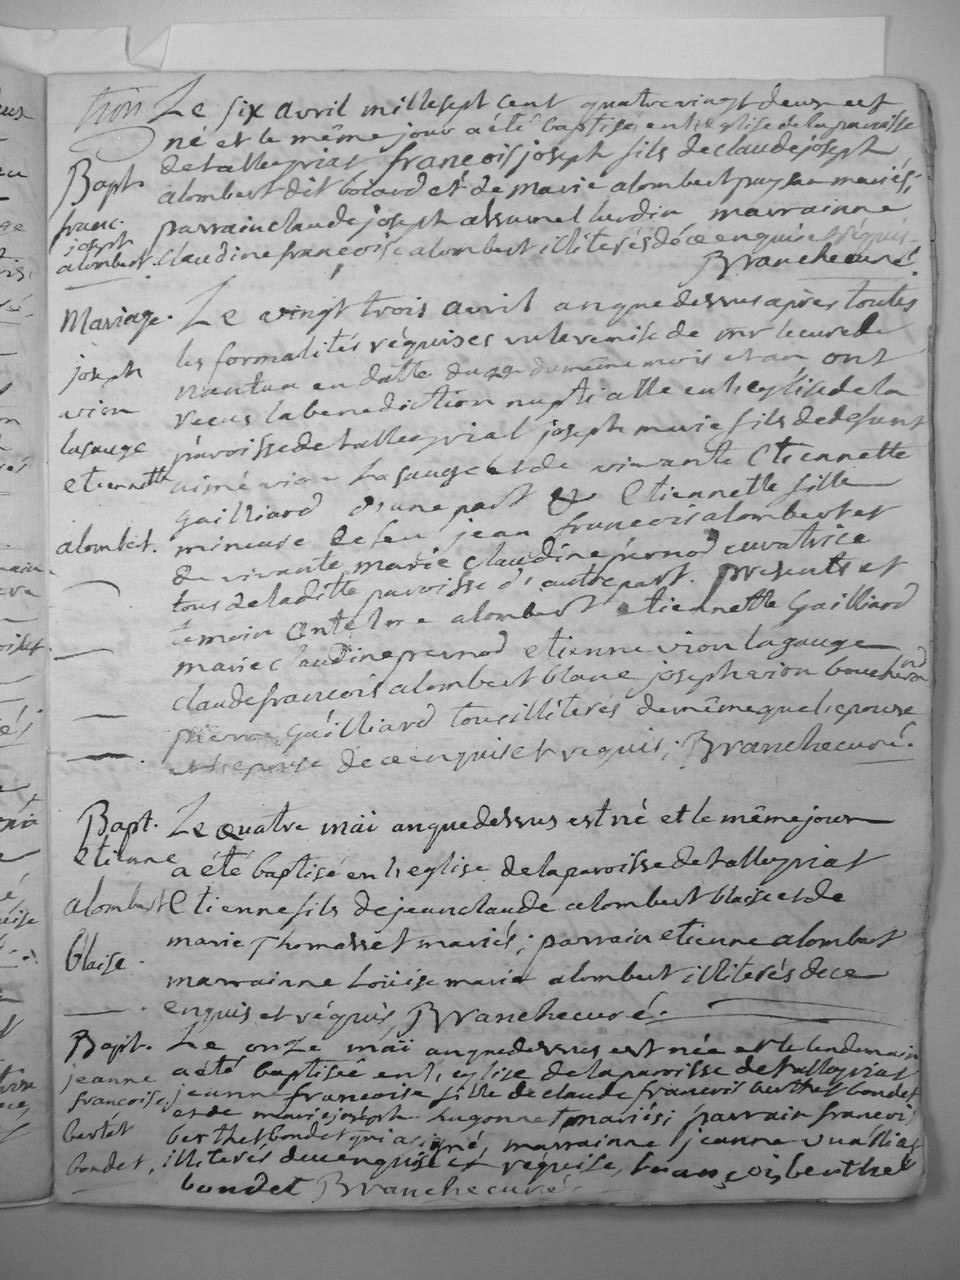 Le six avril mille sept cent quatre vingt deux est
né et le même jour a été baptisé en l'eglise de la paroisse
Bapt.
de talleyriat francois joseph fils de claude joseph
alombert dit boiard et de marie alombert mariés;
franc.
joseph
parrain claude joseph marrainne
alombert.
claudine francoise alombert illiterés de ce enquis et requis.
Branche curé.
Mariage.
Le vingt trois avril an que dessus après toutes
joseph
les formalités réquises vu le remise de mr le curé de
vion
nantua en datte du du même mois et an ont
lagauge
recus la benediction nuptialle en l'eglise de la
etiennette
paroisse de talleyriat joseph marie fils de defunt
aimé vion Lagauge et de vivante Etiennette
alombert.
gailliard d'une part & Etiennette fille
mineure de feu jean francois alombert et
de vivante marie claudine pernod curatrice
tous de la ditte paroisse d'autre part. presents et
temoin antelme alombert etiennette Gailliard
marie claudine pernod etienne vion lagauge
claude francois alombert blanc joseph vion boucherond
pierre Gailliard tous illiterés de même que l'epoux
et l'epouse de ce enquis et requis; Branche curé.
Bapt.
Le quatre mäi an que dessus est né et le même jour
etienne
a été baptisé en l'eglise de la paroisse de talleyriat
alombert
Etienne fils de jean claude alombert blaise et de
blaise.
marie Thomasset mariés; parrain etienne alombert
marrainne Loüise marie alombert illiterés de ce
enquis et réquis Branche curé.
Bapt.
Le onze mäi an que dessus est née et le lendemain
jeanne
a été baptisée en l'eglise de la paroisse de talleyriat
francoise
jeanne francoise fille de claude francois berthet bondet
bertet
et de marie joseph hugonnet mariés; parrain francois
bondet.
berthet bondet qui a signé, marrainne jeanne
illiterés de ce enquise et requise, françois berthet
bondet Branche curé